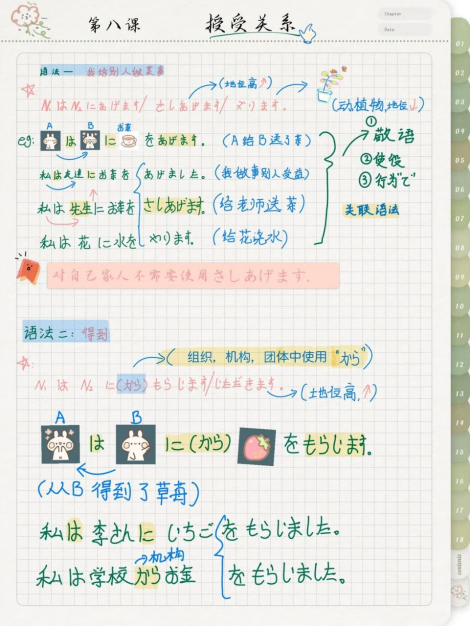 第八课 授受关系
Chapter
Date
语法一 我给别人做某事
(地位高↑)
N₁はN₂にあげます/さしあげます/やります。
(动植物,地位↓)
A B お茶
eg: は に をあげます。 (A给B送了茶)
①敬语
②使役
③行きて
关联语法
私は友達にお茶を あげました。(我做事别人受益)
私は先生にお茶を さしあげます。(给老师送茶)
私は花に水を やります。(给花浇水)
对自己家人不需要使用さしあげます.
语法二: 得到
( 组织, 机构, 团体中使用 "から")
N₁ は N₂ に(から)もらじます/いただきます。
(地位高,↑)
A B
は に(から) をもらじます。
(从B 得到了草莓)
私は李さんに いちごをもらじました。
机构
私は学校からお金 をもらじました。
01
02
03
04
05
06
07
08
09
10
11
12
13
14
15
16
17
18